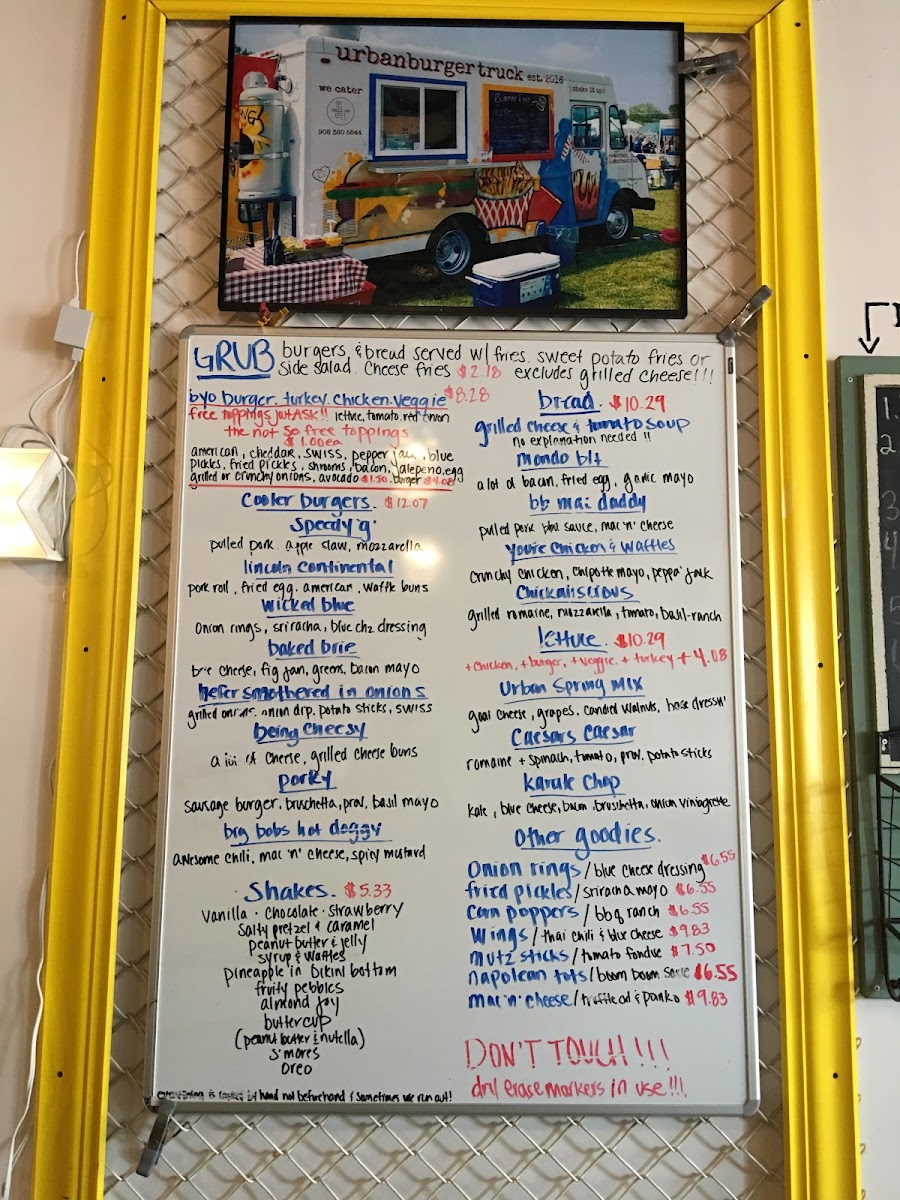 urbanburgertruck est. 2016
shake it up!
we cater
908 580 5844
GRUB burgers & bread served w/ fries. sweet potato fries or
side salad. Cheese fries $2.18 excludes grilled cheese!!!
byo burger. turkey. chicken. veggie $8.28
free toppings just ASK!! lettuce, tomato, red onion
the not so free toppings
$1.00 ea
american, cheddar, swiss, pepper jack, blue
pickles, fried pickles, shrooms, bacon, jalepeno, egg
grilled or crunchy onions, avocado $1.50, burger $4.08
Cooler burgers. $12.07
Speedy 'g'
pulled pork. apple slaw, mozzarella
lincoln continental
pork roll, fried egg. american. waffle buns
wicked blue
onion rings, sriracha, blue chz dressing
baked brie
brie cheese, fig jam, greens, bacon mayo
hefer smothered in onions
grilled onions. onion dip. potato sticks, swiss
being cheesy
cheese, grilled cheese buns
porky
sausage burger, bruschetta, prov. basil mayo
big bobs hot doggy
awesome chili, mac 'n' cheese, spicy mustard
Shakes. $5.33
vanilla · chocolate · strawberry
salty pretzel & caramel
peanut butter & jelly
syrup & waffles
pineapple in bikini bottom
fruity pebbles
almond joy
buttercup
(peanut butter & nutella)
s'mores
oreo
by hand not beforehand & sometimes we run out!
bread. $10.29
grilled cheese & tomato soup
no explanation needed !!
mondo blt
a lot of bacon, fried egg, garlic mayo
bb mac daddy
pulled pork sauce, mac 'n' cheese
you're chicken & waffles
crunchy chicken, chipotle mayo, peppa' jack
chickalicious
grilled romaine, mozzarella, tomato, basil-ranch
lettuce. $10.29
+ chicken, + burger, + veggie. + turkey + 4.08
Urban Spring Mix
goat cheese, grapes. candied walnuts, house dressin'
Caesars Caesar
romaine + spinach, tomato, prov. potato sticks
Karate Chop
kale, blue cheese, bacon bruschetta, onion vinaigrette
Other goodies.
Onion rings/blue cheese dressing $6.55
fried pickles/sriracha mayo $6.55
corn poppers/bbq ranch $6.55
Wings/thai chili & blue cheese $9.83
mutz sticks/tomato fondue $7.50
napolean tots/boom boom sauce $6.55
mac 'n' cheese/truffle oil & panko $9.83
DON'T TOUCH!!!
dry erase markers in use!!!
1.
2
3
4
5